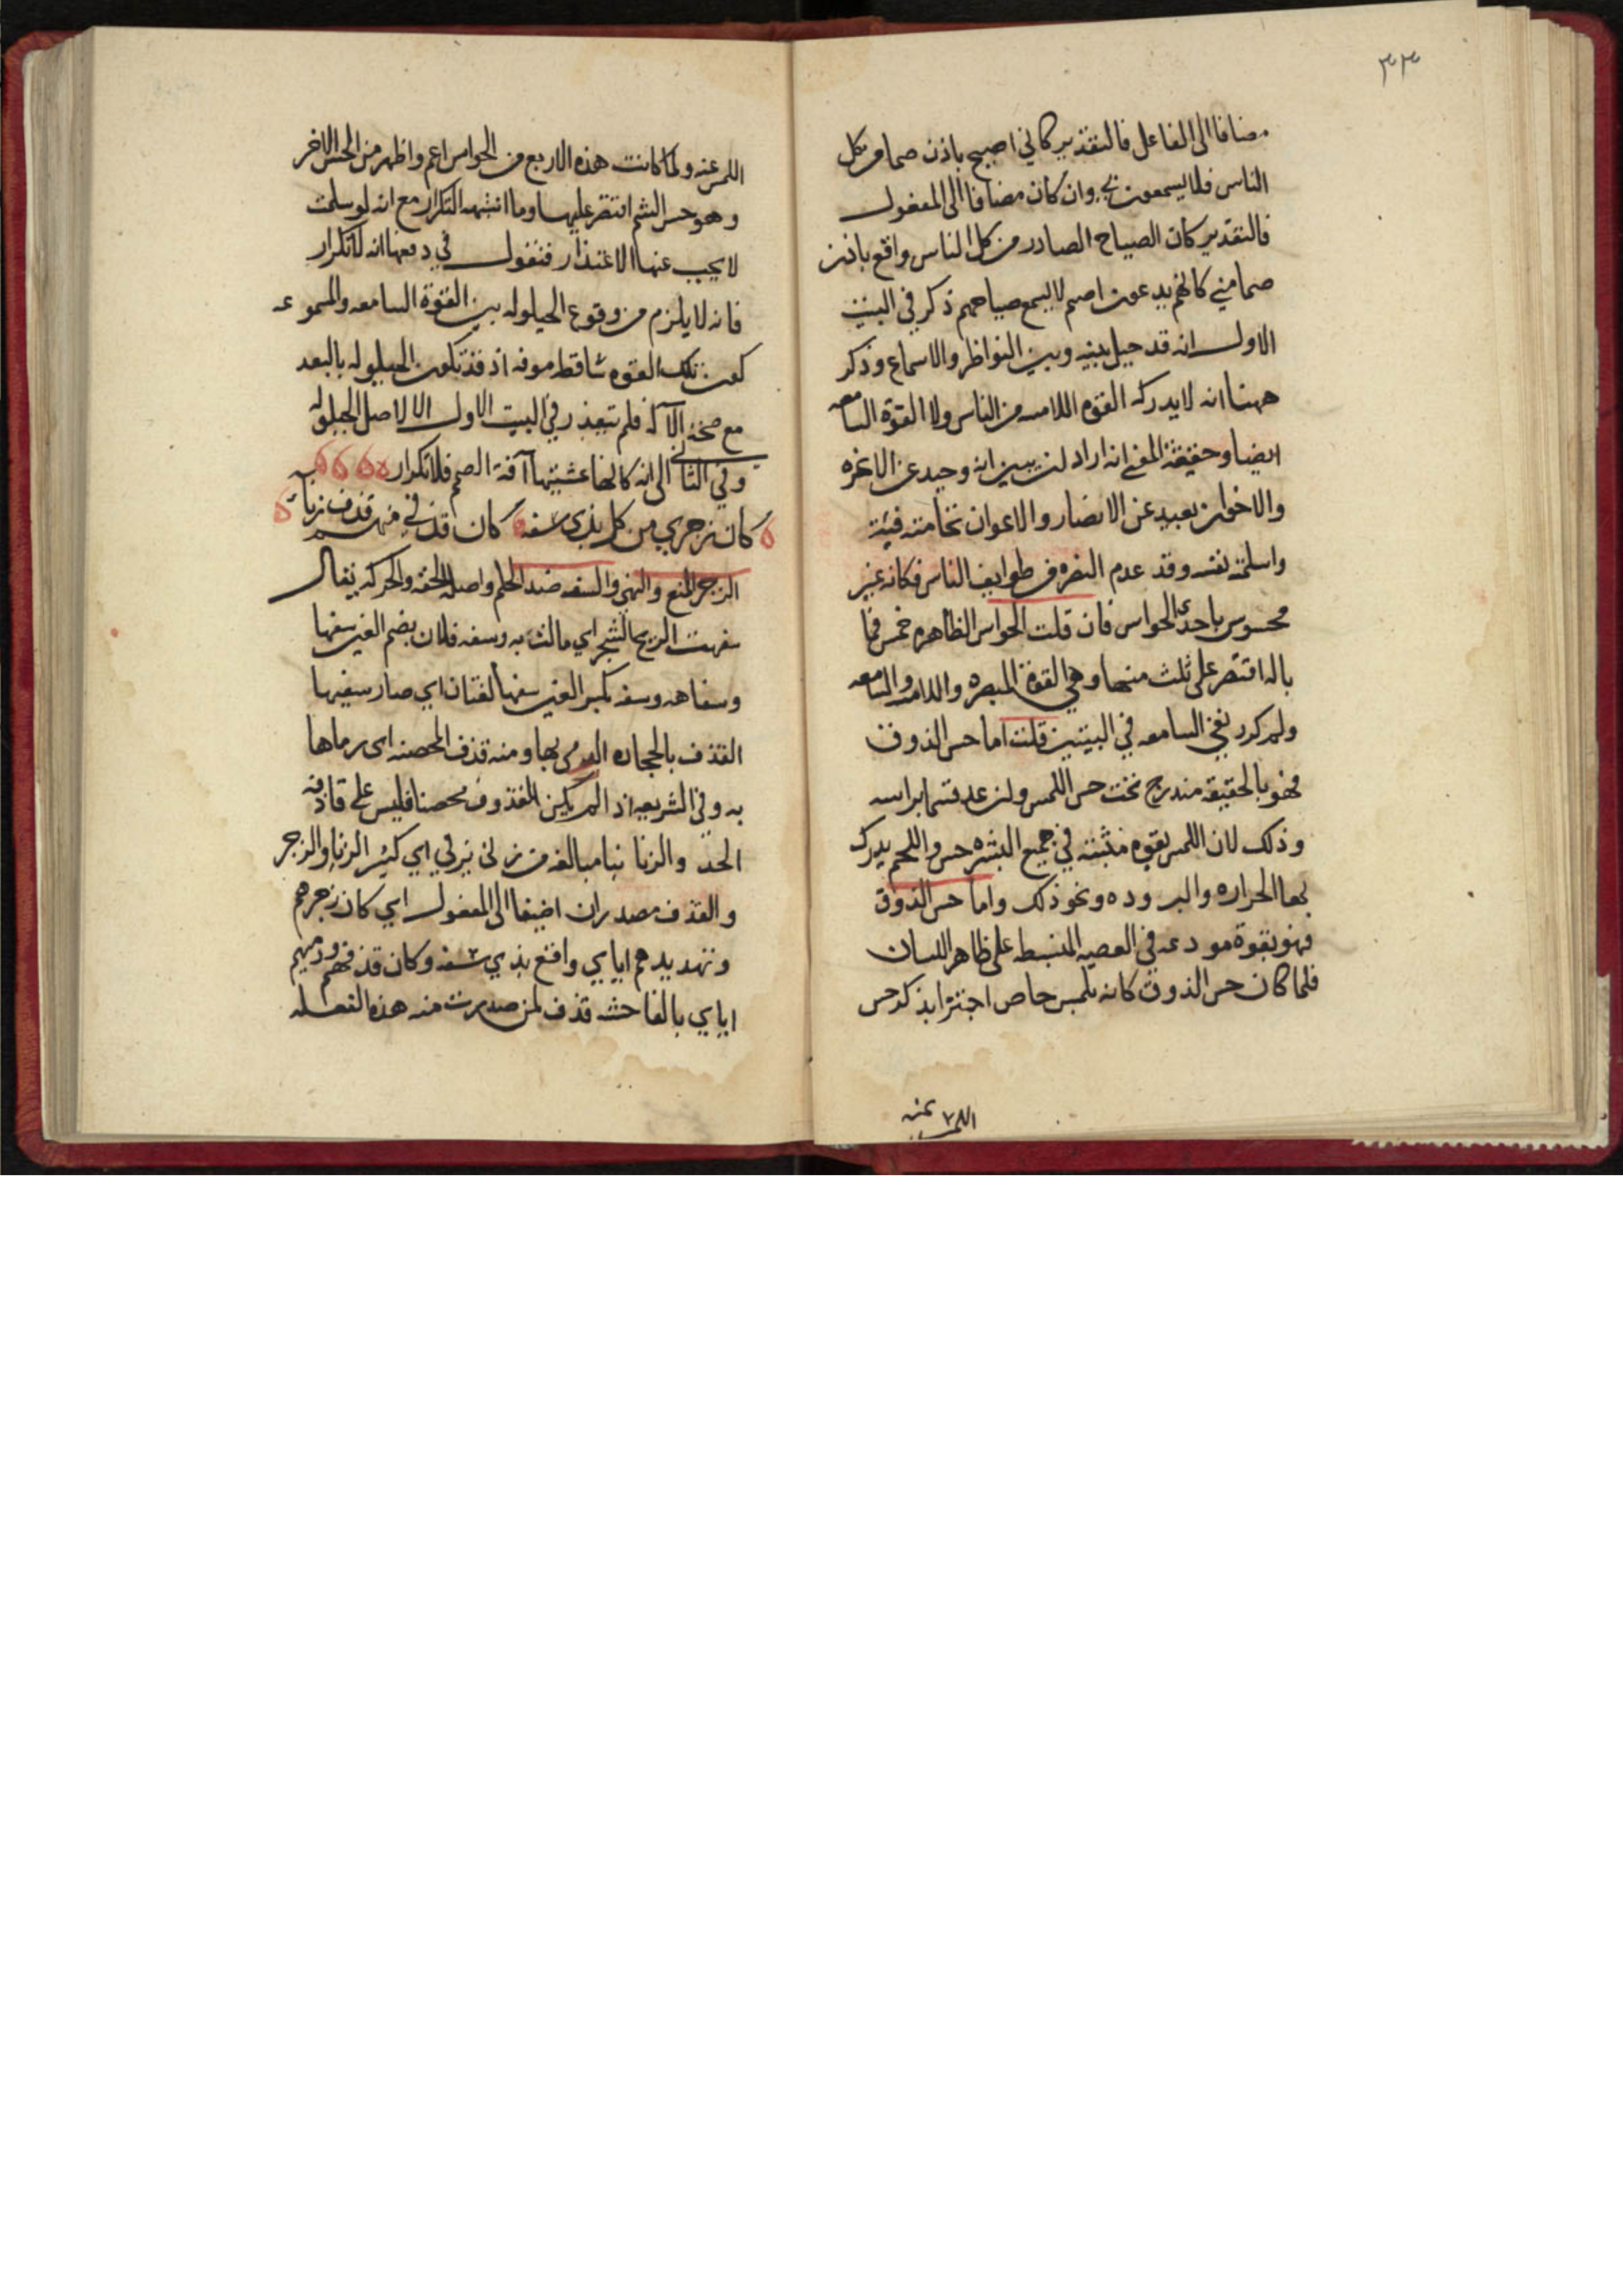 ٣٣
مضافا الى الفاعل فالتقدير كاني اصيح باذن صما من كل
الناس فلا يسمعون بي وان كان مضافا الى المفعول
فالتقدير كان الصياح الصادر من كل الناس واقع باذن
صما مني كانهم يدعون اصم لا يسمع صياحهم ذكر في البيت
الاول انه قد حيل بينه وبين النواظر والاسماع وذكر
ههنا انه لا يدركه القوة اللامسه من الناس ولا القوة السامعه
ايضا وحقيقة المعنى انه اراد ان يبين انه وحيد عن الاعزه
والاخوان بعيد عن الانصار والاعوان تحامته فيئته
واسلمته نفسه وقد عدم النصره في طوايف الناس فكانه غير
محسوس باحدى الحواس فان قلت الحواس الظاهره خمس فما
باله اقتصر على ثلث منها وهي القوة المبصره واللامسه والسامعه
ولم كرر نفي السامعه في البيتين قلت اما حس الذوق
فهو بالحقيقه مندرج تحت حس اللمس وان عد قسما براسه
وذلك لان اللمس بقوه منبثه في جميع البشره حس واللحم يدرك
بها الحراره والبروده ونحو ذلك واما حس الذوق
فهو بقوة مودعه في العصبه المنبسطه على ظاهر اللسان
فلما كان حس الذوق كانه لمس خاص اجتزا بذكر حس
اللمس عنه
اللمس عنه ولما كانت هذه الاربع من الحواس اعم واظهر من الحس الاخر
وهو حس الشم اقتصر عليها وما التكرار مع انه لو سلمت
لا يجب عنها الاعتذار فنقول في دفعها انه لا تكرار
فانه لا يلزم من وقوع الحيلوله بين القوة السامعه والمسموعه
كون تلك القوه ساقطه موفه اذ قد تكون الحيلوله بالبعد
مع صحة الآله فلم يتعذر في البيت الاول الا لاصل الحيلوله
وفي الثاني الى انه كانها عشيتها آفة الصمم فلا تكرار
كان زجري من كل بذي سفه كان قذفي منهم قذف زناء
الزجر المنع والنهي والسفه ضد الحلم واصله الخفه والحركه يقال
سفهت الريح الشجر اي مالت به وسفه فلان بضم العين سفها
وسفاهه وسفه بكسر العين سفها لغتان اي صار سفيها
القذف بالحجاره الرمي بها ومنه قذف المحصنه اى رماها
به وفي الشريعه اذا لم يكن المقذوف محصنا فليس على قاذفه
الحد والزنا بنا مبالغه من زنى يزني اي كثير الزنا والزجر
والقذف مصدران اضيفا الى المفعول اي كان زجرهم
وتهديدهم اياي واقع بذي سفه وكان قذفهم ورميهم
اياي بالفاحشه قذف لمن صدرت منه هذه الفعله